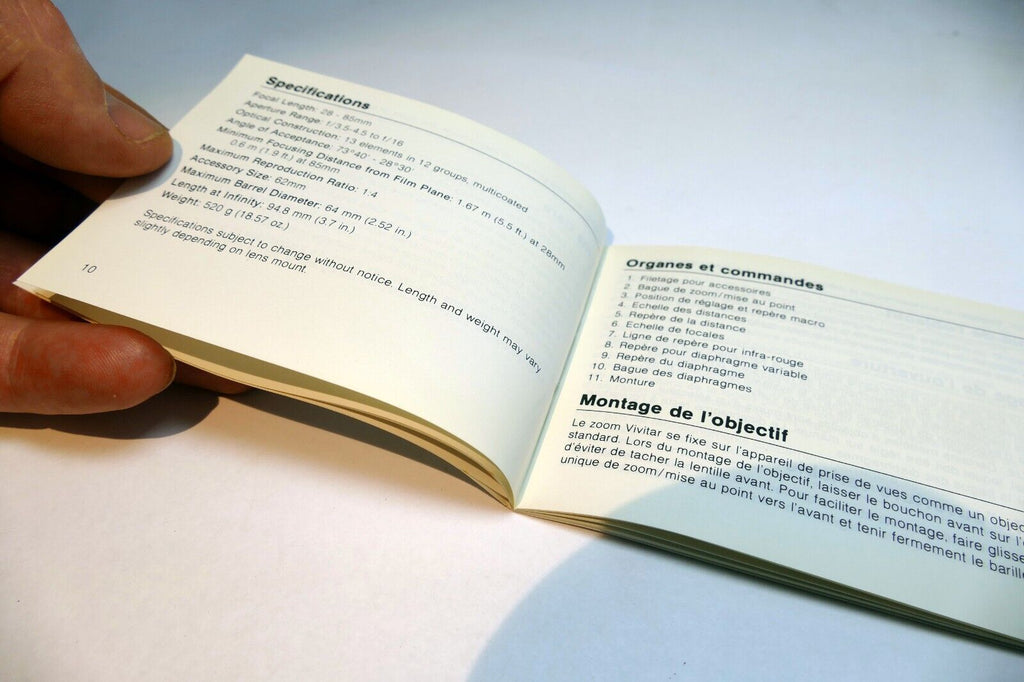 Specifications
Focal Length: 28 - 85mm
Aperture Range: f/3.5-4.5 to f/16
Optical Construction: 13 elements in 12 groups, multicoated
Angle of Acceptance: 73°40' - 28°30'
Minimum Focusing Distance from Film Plane: 1.67 m (5.5 ft.) at 28mm
0.6 m (1.9 ft.) at 85mm
Maximum Reproduction Ratio: 1:4
Accessory Size: 62mm
Maximum Barrel Diameter: 64 mm (2.52 in.)
Length at Infinity: 94.8 mm (3.7 in.)
Weight: 520 g (18.57 oz.)
Specifications subject to change without notice. Length and weight may vary
slightly depending on lens mount.
10
Organes et commandes
1. Filetage pour accessoires
2. Bague de zoom/mise au point
3. Position de réglage et repère macro
4. Echelle des distances
5. Repère de la distance
6. Echelle de focales
7. Ligne de repère pour infra-rouge
8. Repère pour diaphragme variable
9. Repère du diaphragme
10. Bague des diaphragmes
11. Monture
Montage de l'objectif
Le zoom Vivitar se fixe sur l'appareil de prise de vues comme un objec
standard. Lors du montage de l'objectif, laisser le bouchon avant sur l'
d'éviter de tacher la lentille avant. Pour faciliter le montage, faire glisse
unique de zoom/mise au point vers l'avant et tenir fermement le barill